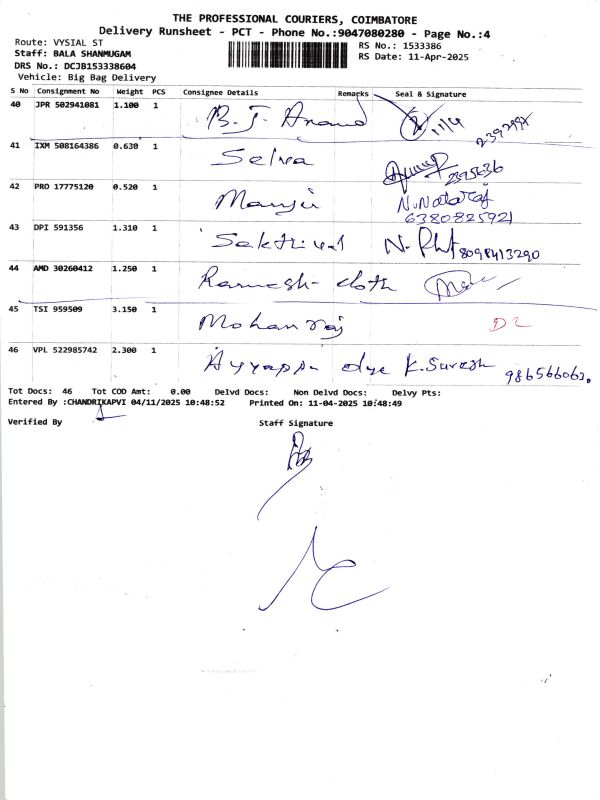 THE PROFESSIONAL COURIERS, COIMBATORE
Delivery Runsheet - PCT - Phone No.:9047080280 - Page No.:4
Route: VYSIAL ST
Staff: BALA SHANMUGAM
DRS No.: DCJB153338604
Vehicle: Big Bag Delivery
RS No.: 1533386
RS Date: 11-Apr-2025
S No Consignment No Weight PCS Consignee Details Remarks Seal & Signature
40 JPR 502941081 1.100 1 B.J. Anand 11/4
41 IXM 508164386 0.630 1 Selva 295636
42 PRO 17775120 0.520 1 Manju N.Nataraj
6380825921
43 DPI 591356 1.310 1 Sakthivel 8098413290
44 AMD 30260412 1.250 1 Ramesh- cloth
45 TSI 959509 3.150 1 Mohanraj D2
46 VPL 522985742 2.300 1 Ayyappa dye K.Suresh
Tot Docs: 46 Tot COD Amt: 0.00 Delvd Docs: Non Delvd Docs: Delvy Pts:
Entered By :CHANDRIKAPVI 04/11/2025 10:48:52 Printed On: 11-04-2025 10:48:49
Verified By Staff Signature